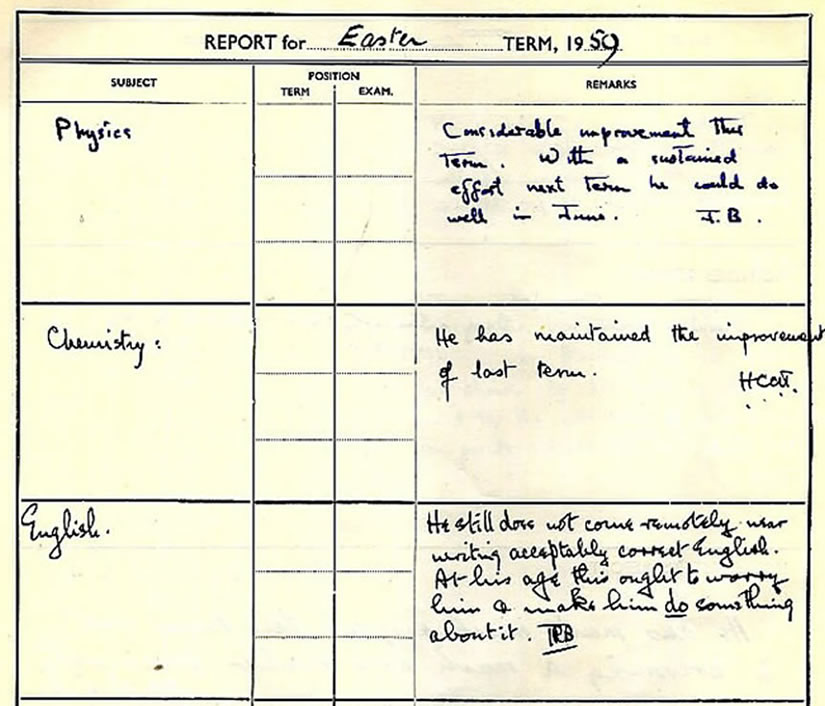 REPORT for Easter TERM, 1959
SUBJECT POSITION REMARKS
TERM EXAM.
Physics
Considerable improvement this
Term. With a sustained
effort next term he could do
well in June. J.B.
Chemistry:
He has maintained the improvement
of last term.
English.
He still does not come remotely near
writing acceptably correct English.
At his age this ought to worry
him & make him do something
about it.